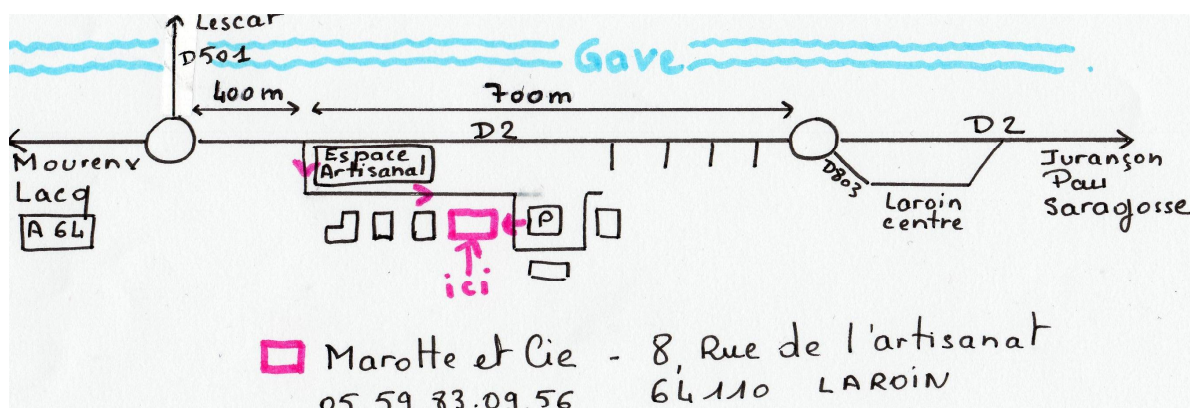 Lescar
D501
Gave
400m
700m
D2
D2
Mourenx
Lacq
A 64
Espace
Artisanal
D803
Laroin
centre
Jurançon
Pau
Saragosse
P
ici
Marotte et Cie - 8, Rue de l'artisanat
05.59.83.09.56 64110 LAROIN